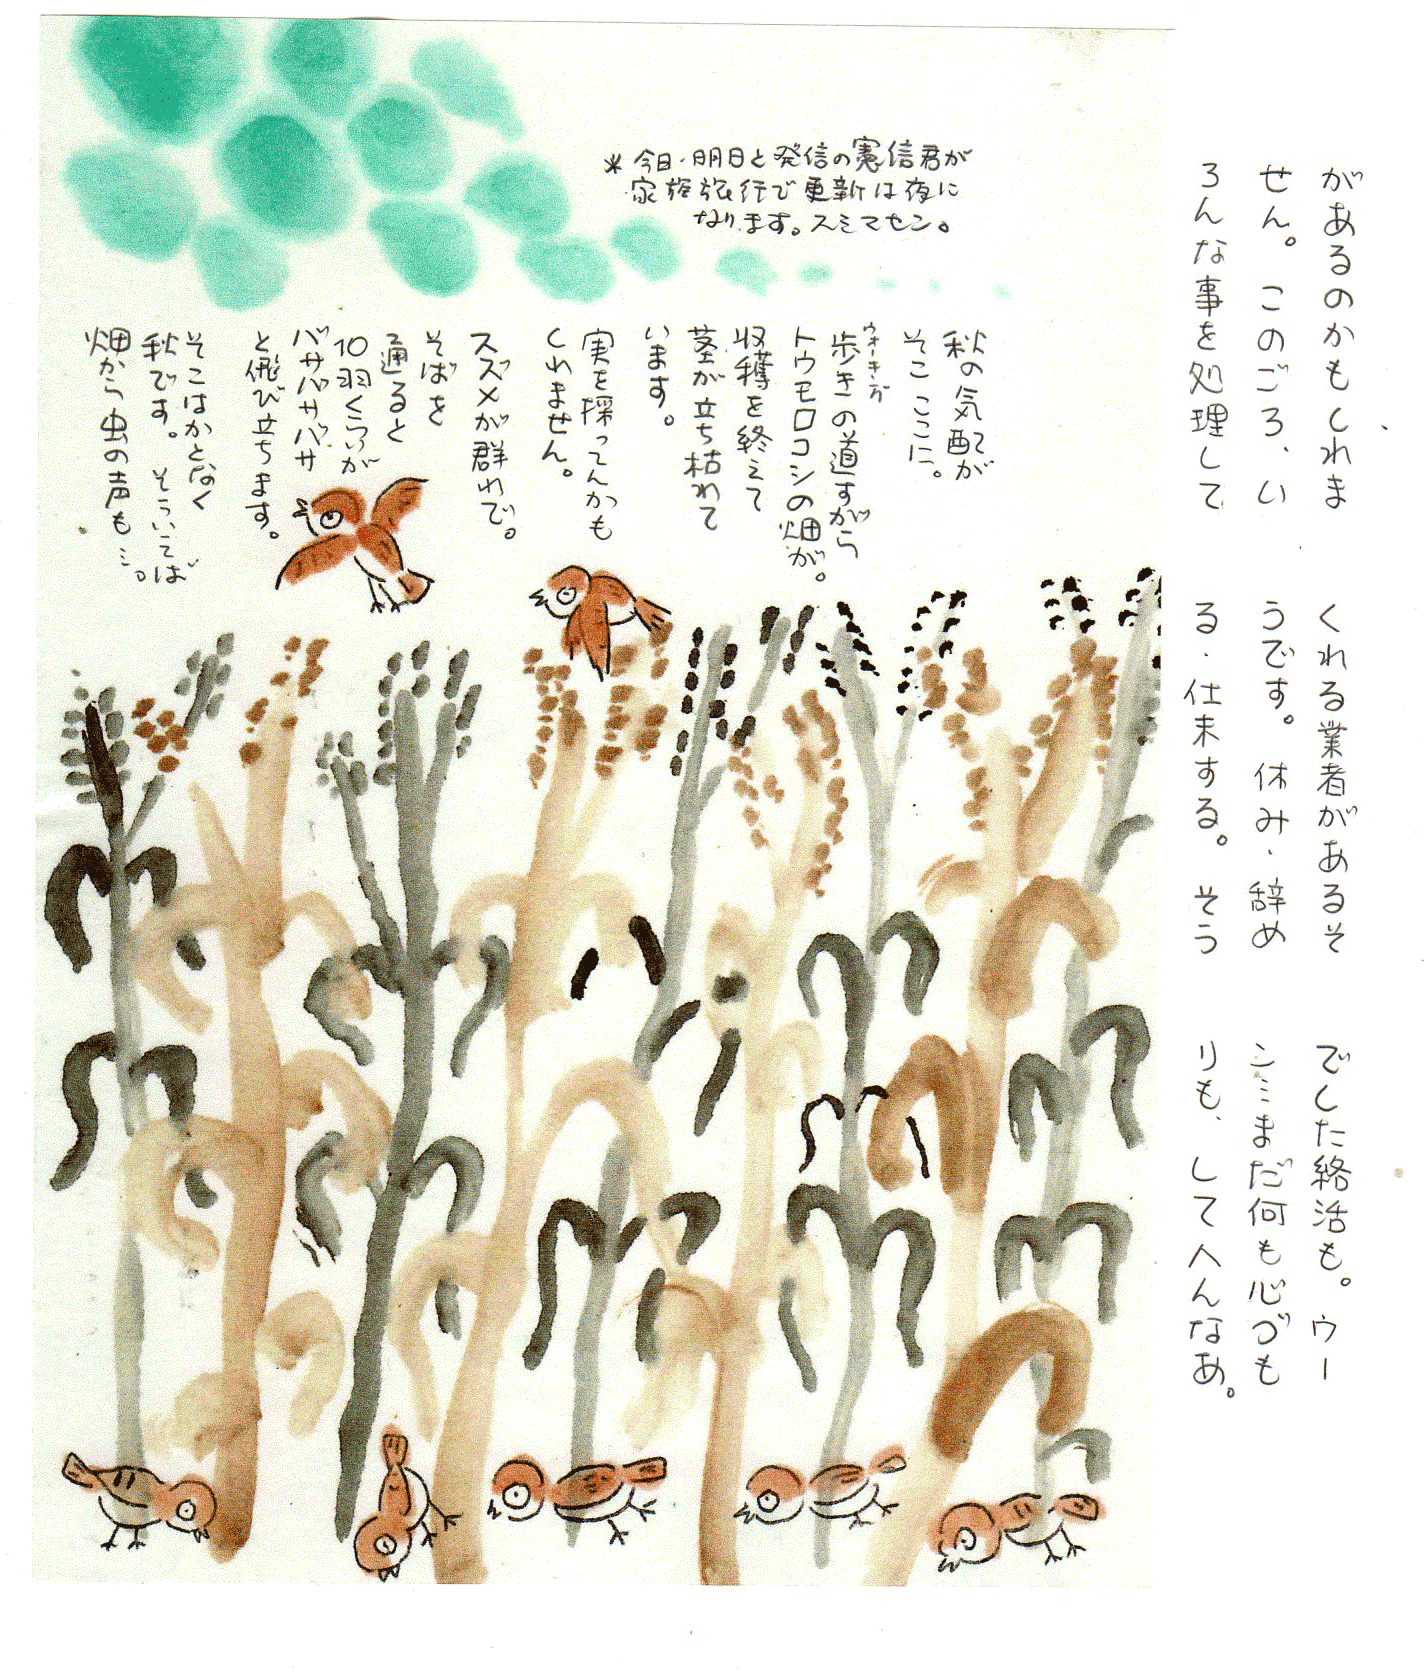 があるのかもしれま
せん。このごろ、い
ろんな事を処理して
くれる業者があるそ
うです。休み・辞め
る・仕末する。そう
でした終活も。ウー
ン…まだ何も心づも
りも、してへんなあ。
＊今日・明日と発信の憲信君が
家族旅行で更新は夜に
なります。スミマセン。
秋の気配が
そこここに。
ウォーキング
歩きの道すがら
トウモロコシの畑が。
収穫を終えて
茎が立ち枯れて
います。
実を採ってんかも
しれません。
スズメが群れで。
そばを
通ると
10羽くらいが
バサバサバサ
と飛び立ちます。
そこはかとなく
秋です。そういてば
畑から虫の声も…。